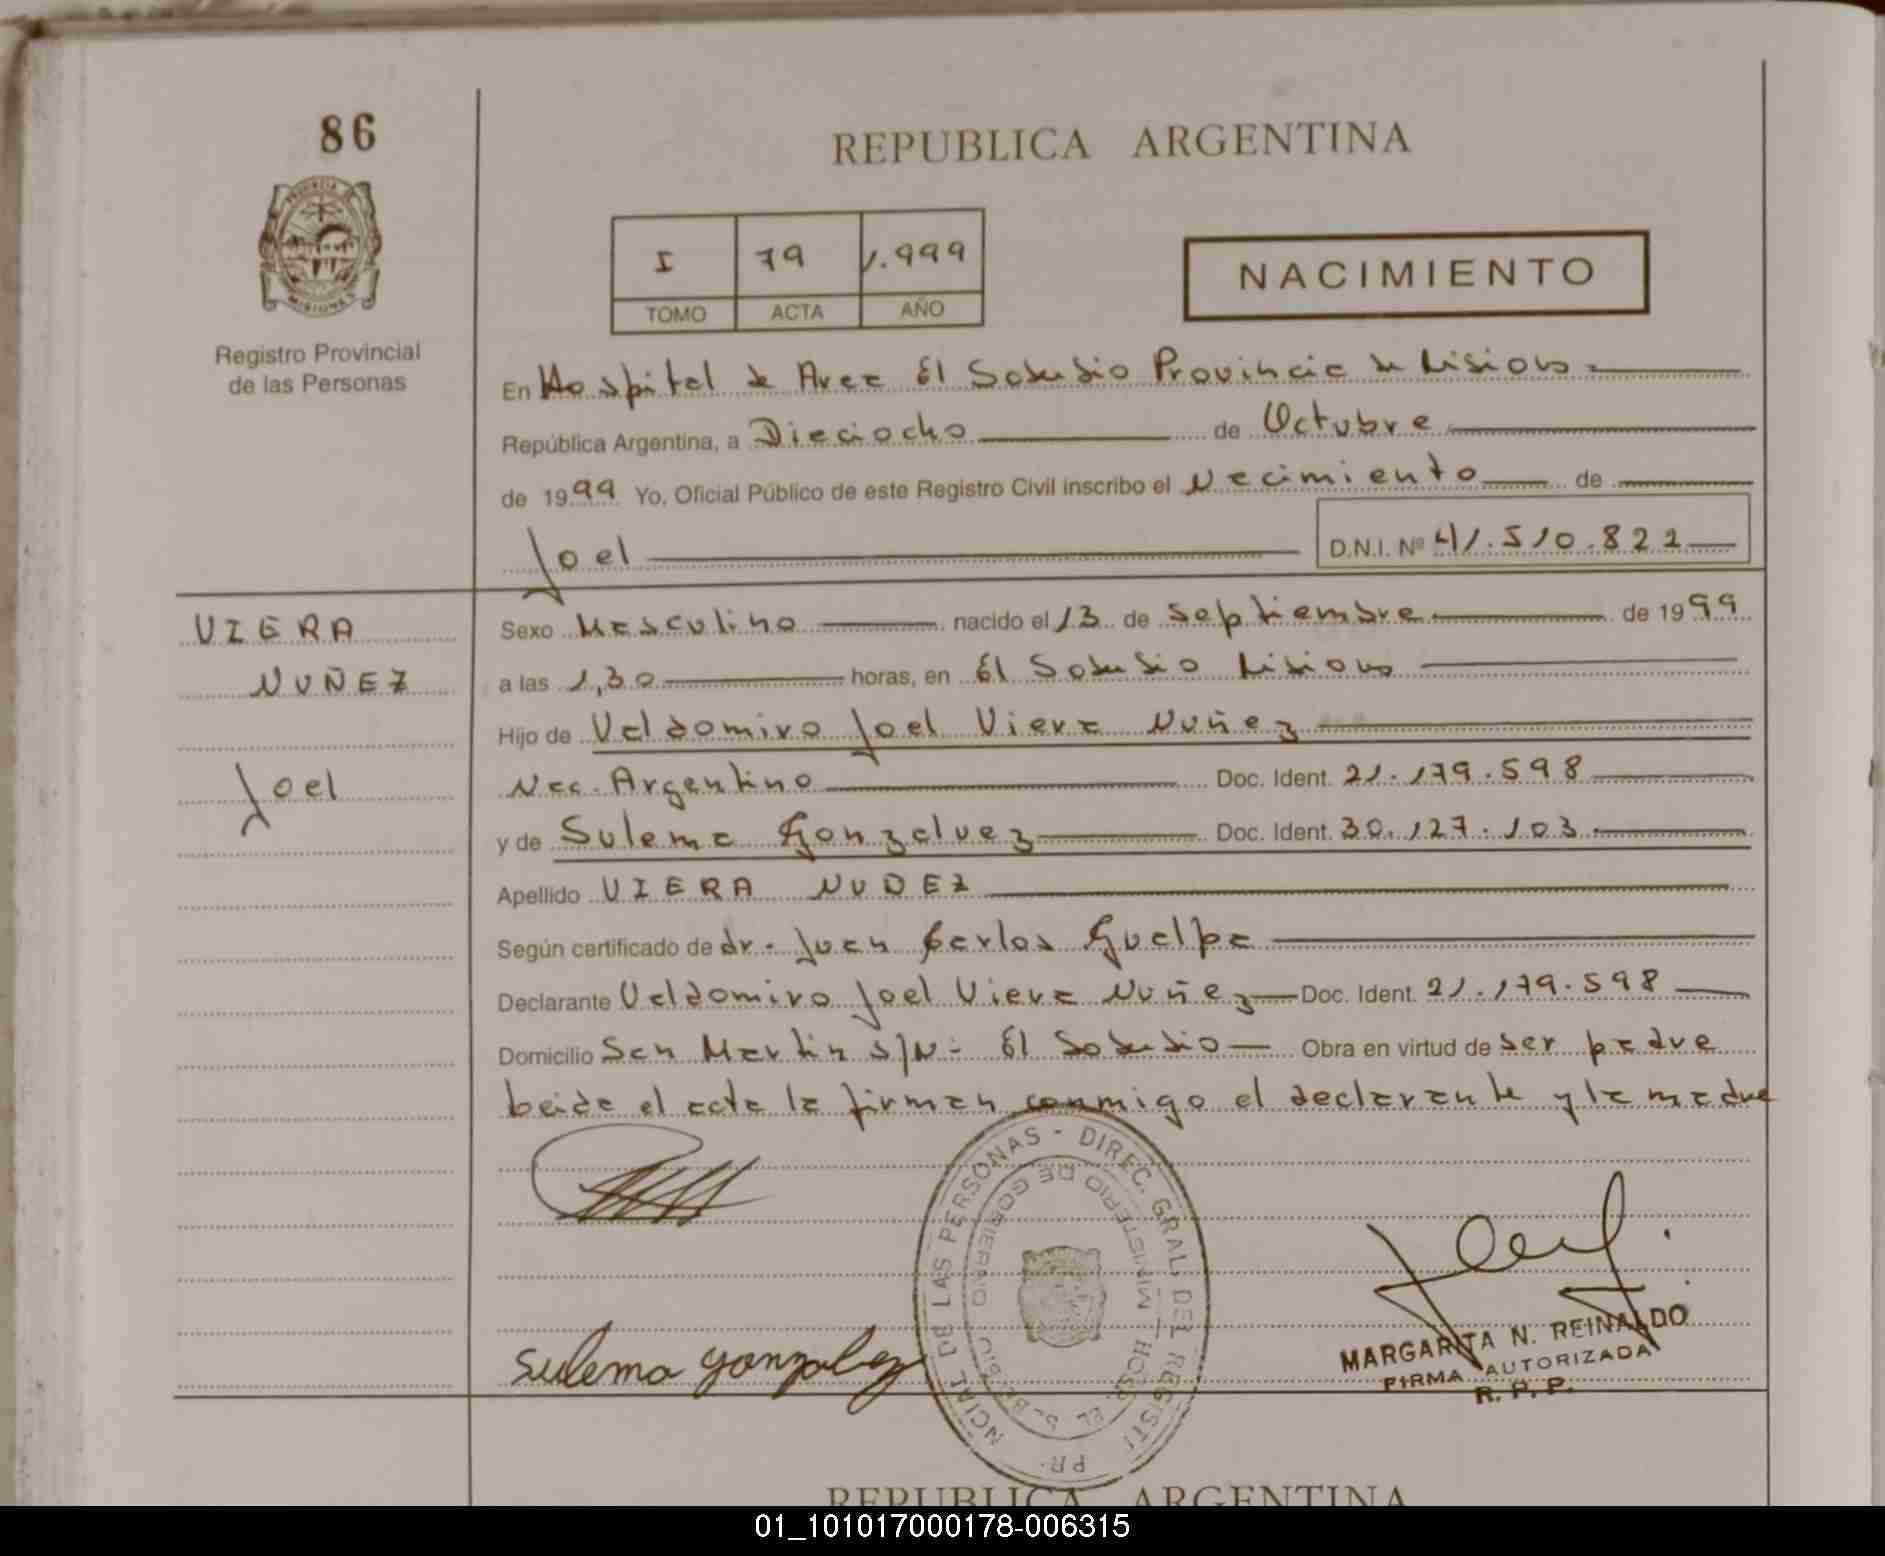 86
REPUBLICA ARGENTINA
I 79 1.999
TOMO ACTA AÑO
NACIMIENTO
Registro Provincial
de las Personas
En Hospital de Area El Soberbio Provincia de Misiones
República Argentina, a Dieciocho de Octubre
de 1999 Yo, Oficial Público de este Registro Civil inscribo el Nacimiento de
Joel D.N.I. Nº 41.510.822
VIERA
NUÑEZ
Joel
Sexo Masculino nacido el 13 de septiembre de 1999
a las 1,30 horas, en El Soberbio Misiones
Hijo de Valdomiro Joel Viera Nuñez
Nac. Argentino Doc. Ident. 21.179.598
y de Sulema Gonzalvez Doc. Ident. 30.127.103
Apellido VIERA NUÑEZ
Según certificado de dr. Juan Carlos Guelpa
Declarante Valdomiro Joel Viera Nuñez Doc. Ident. 21.179.598
Domicilio San Martin s/N- El Soberbio Obra en virtud de ser padre
Leida el acta la firman conmigo el declarante y la madre
NCIAL DE LAS PERSONAS - DIREC. GRAL. DEL REGIST
MINISTERIO DE GOBIERNO
HOSP. EL
Sulema gonzalez
MARGARITA N. REINALDO
FIRMA AUTORIZADA
R. P. P.
REPUBLICA ARGENTINA
01_101017000178-006315